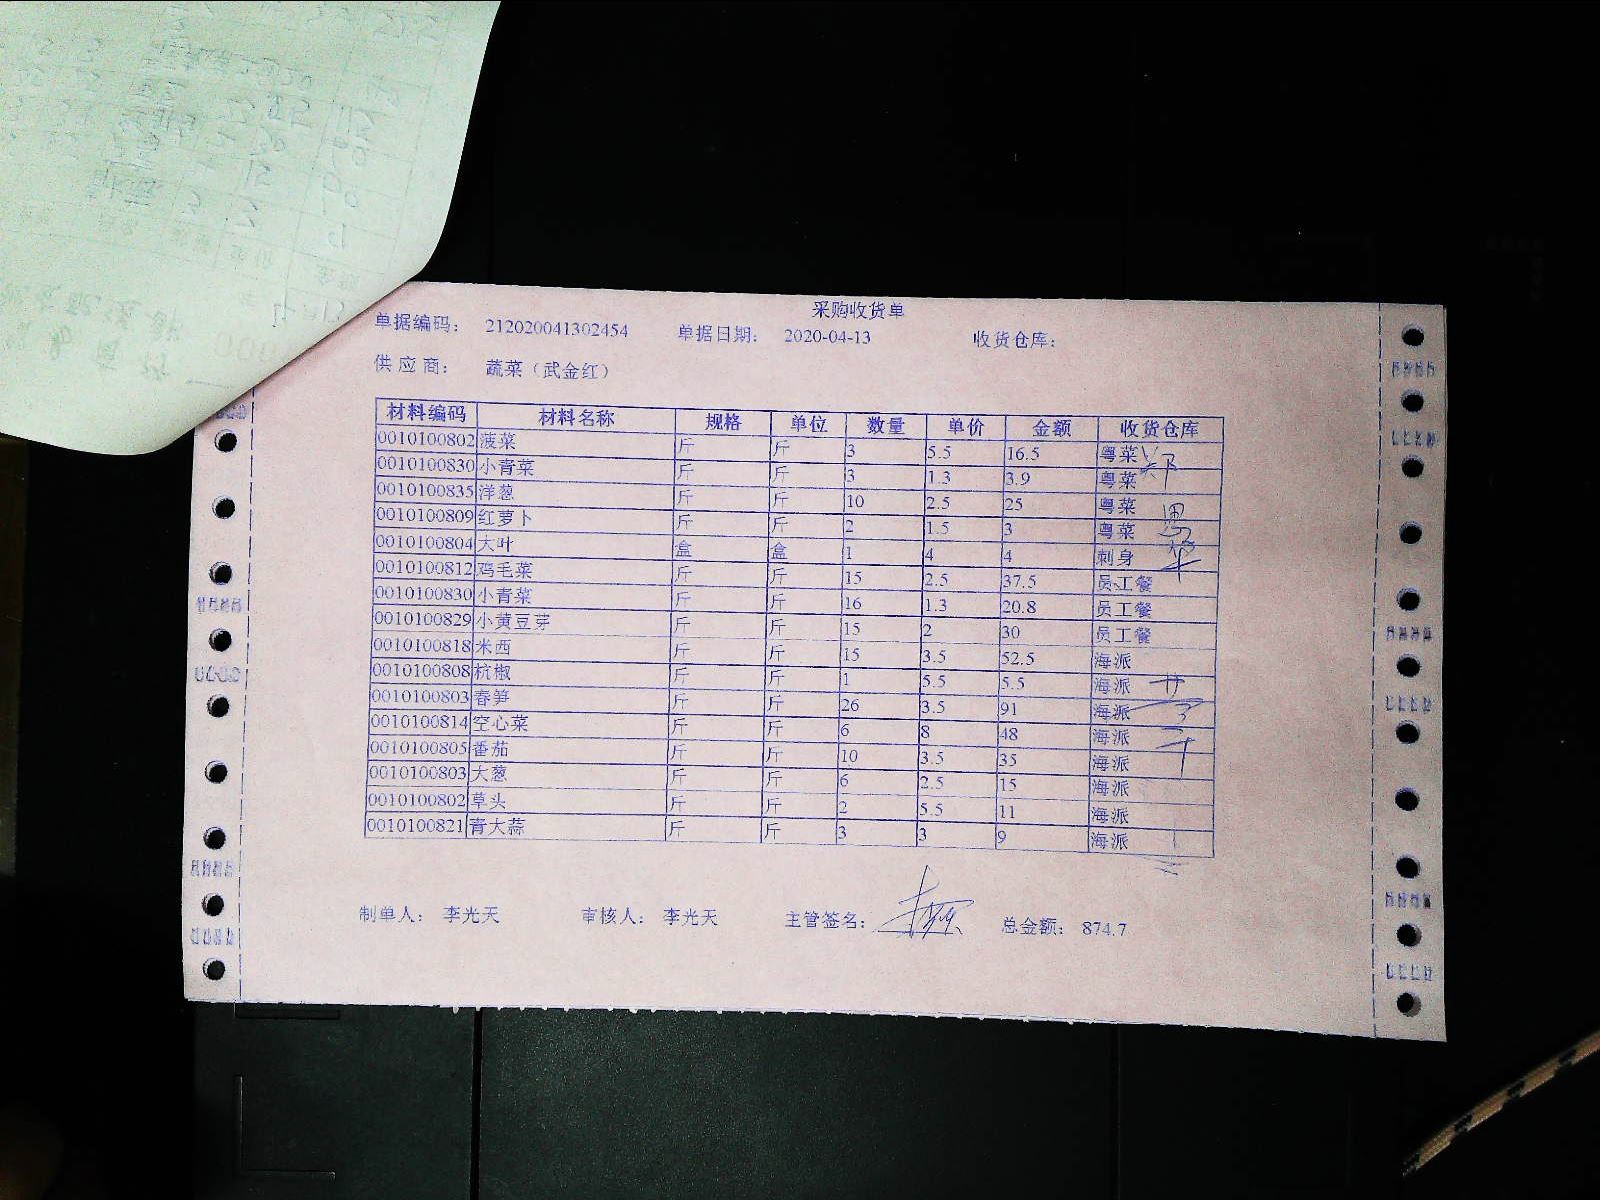 采购收货单
单据编码： 212020041302454 单据日期： 2020-04-13 收货仓库：
供应商： 蔬菜（武金红）
材料编码 材料名称 规格 单位 数量 单价 金额 收货仓库
0010100802 菠菜 斤 斤 3 5.5 16.5 粤菜
0010100830 小青菜 斤 斤 3 1.3 3.9 粤菜
0010100835 洋葱 斤 斤 10 2.5 25 粤菜
0010100809 红萝卜 斤 斤 2 1.5 3 粤菜
0010100804 大叶 盒 盒 1 4 4 刺身
0010100812 鸡毛菜 斤 斤 15 2.5 37.5 员工餐
0010100830 小青菜 斤 斤 16 1.3 20.8 员工餐
0010100829 小黄豆芽 斤 斤 15 2 30 员工餐
0010100818 米西 斤 斤 15 3.5 52.5 海派
0010100808 杭椒 斤 斤 1 5.5 5.5 海派
0010100803 春笋 斤 斤 26 3.5 91 海派
0010100814 空心菜 斤 斤 6 8 48 海派
0010100805 番茄 斤 斤 10 3.5 35 海派
0010100803 大葱 斤 斤 6 2.5 15 海派
0010100802 草头 斤 斤 2 5.5 11 海派
0010100821 青大蒜 斤 斤 3 3 9 海派
制单人： 李光天 审核人： 李光天 主管签名： 总金额： 874.7